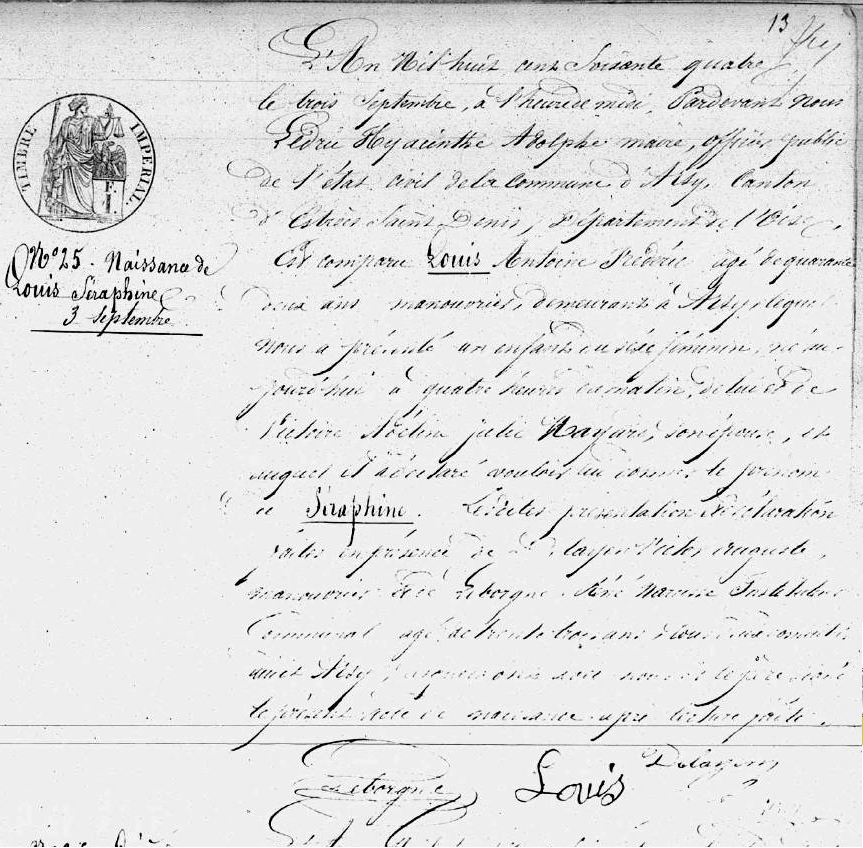 13
L'An Mil huit cent Soixante quatre
le trois Septembre, à l'heure de midi, Pardevant Nous
Ledru Hyacinthe Adolphe maire, officier public
de l'état civil de la Commune d'Arsy, Canton
d'Estrées Saint Denis, Département de l'Oise,
Est comparu Louis Antoine Frédéric agé de quarante
deux ans manouvrier, demeurant à Arsy, lequel
nous a présenté un enfant du sexe féminin, né au
jourd'hui à quatre heures du matin, de lui et de
Victoire Noëline julie son épouse, et
auquel il a déclaré vouloir lui donner le prénom
de Séraphine. Lesdites présentation et déclaration
faites en présence de Victor auguste,
manouvrier et de Leborgne René Narcisse Instituteur
Communal agé de trente trois ans tous deux
Arsy, et le père signé
le présent acte de naissance après lecture faite.
Leborgne Louis Delayen
TIMBRE IMPERIAL.
N° 25. Naissance de
Louis Séraphine
3 Septembre